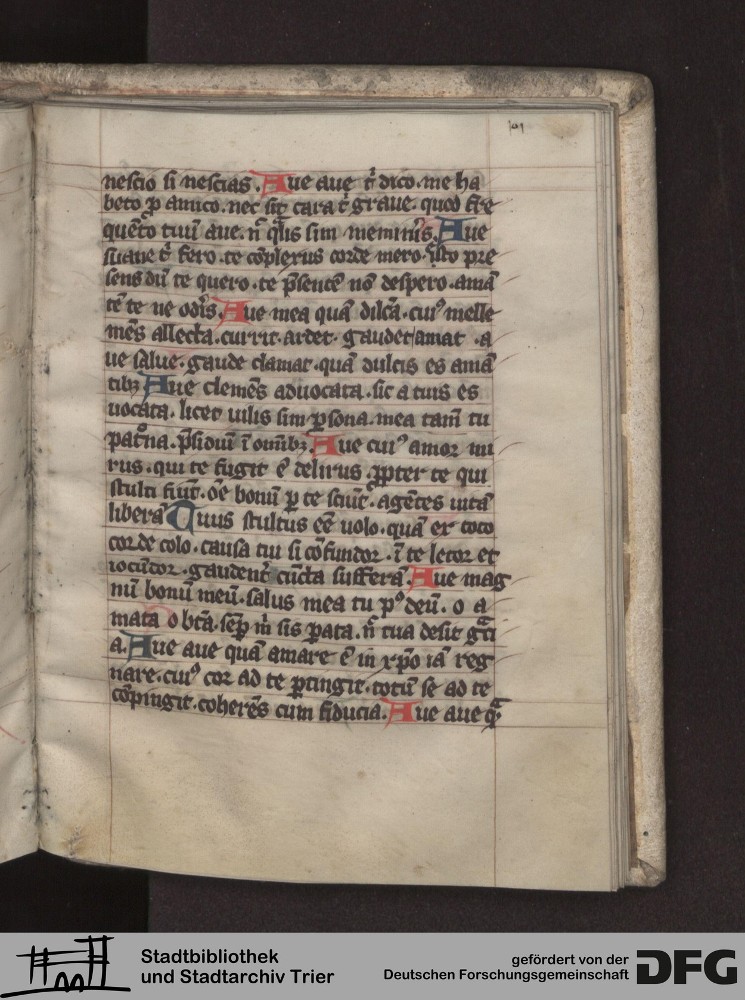 101
nescio si nescias. Aue aue t̉ dico. me ha
beto ꝑ amico. nec sit cara t̉ graue. quod fre
quēto tuū aue. n̄ q̄lis sim memin̉is. Aue
suaue t̉ fero. te cōplexus corde mero. isto pre
sens dū te quero. te p̄sentē nō despero. amā
tē te ne od̉is. Aue mea quā dilc̄a. cuiꝰ melle
mēs allecta. currit. ardet. gaudet amat. a
ue salue. gaude clamat. quā dulcis es amā
tibꝫ Aue clemēs aduocata. sic a tuis es
uocata. licet uilis sim ꝑsona. mea tam̄ tu
patͦna. p̄sidiū ī om̄ibꝫ. Aue cuiꝰ amor mi
rus. qui te fugit ē delirus. ꝓpter te qui
stulti fiūt. oē bonū ꝑ te sciūt. agētes uitā
liberā Tuus stultus eē uolo. quā ex toto
corde colo. causa tui si cōfundor. ī te letor et
iocūdor. gaudent̉ cūcta sufferā. Aue mag
nū bonū meū. salus mea tu pꝰ deū. o a
mata o bt̄a. sēꝑ m̉ sis ꝑata. n̄ tua desit gr̄ci
a. Aue aue quā amare ē in xp̄o iā reg
nare. cuiꝰ cor ad te ꝑtingit. totū se ad te
cōpingit. coherēs cum fiducia. Aue aue qͣ
Stadtbibliothek
und Stadtarchiv Trier
gefördert von der
Deutschen Forschungsgemeinschaft
DFG